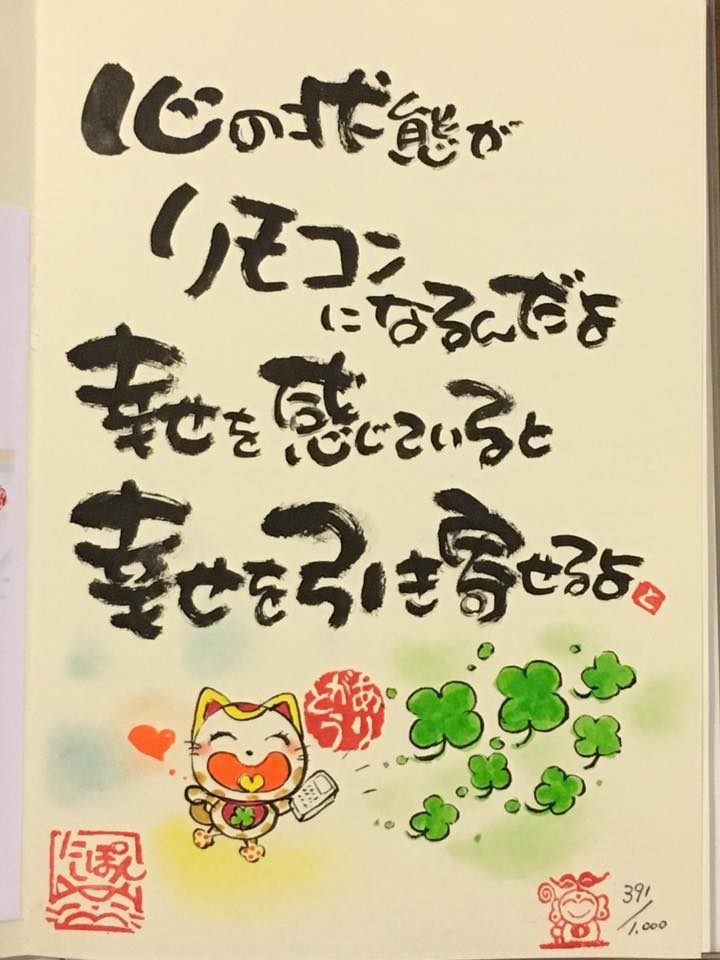 心の状態が
リモコン
になるんだよ
幸せを感じていると
幸せを引き寄せるよ
と
ありがとう
にしぽん
391/1.000